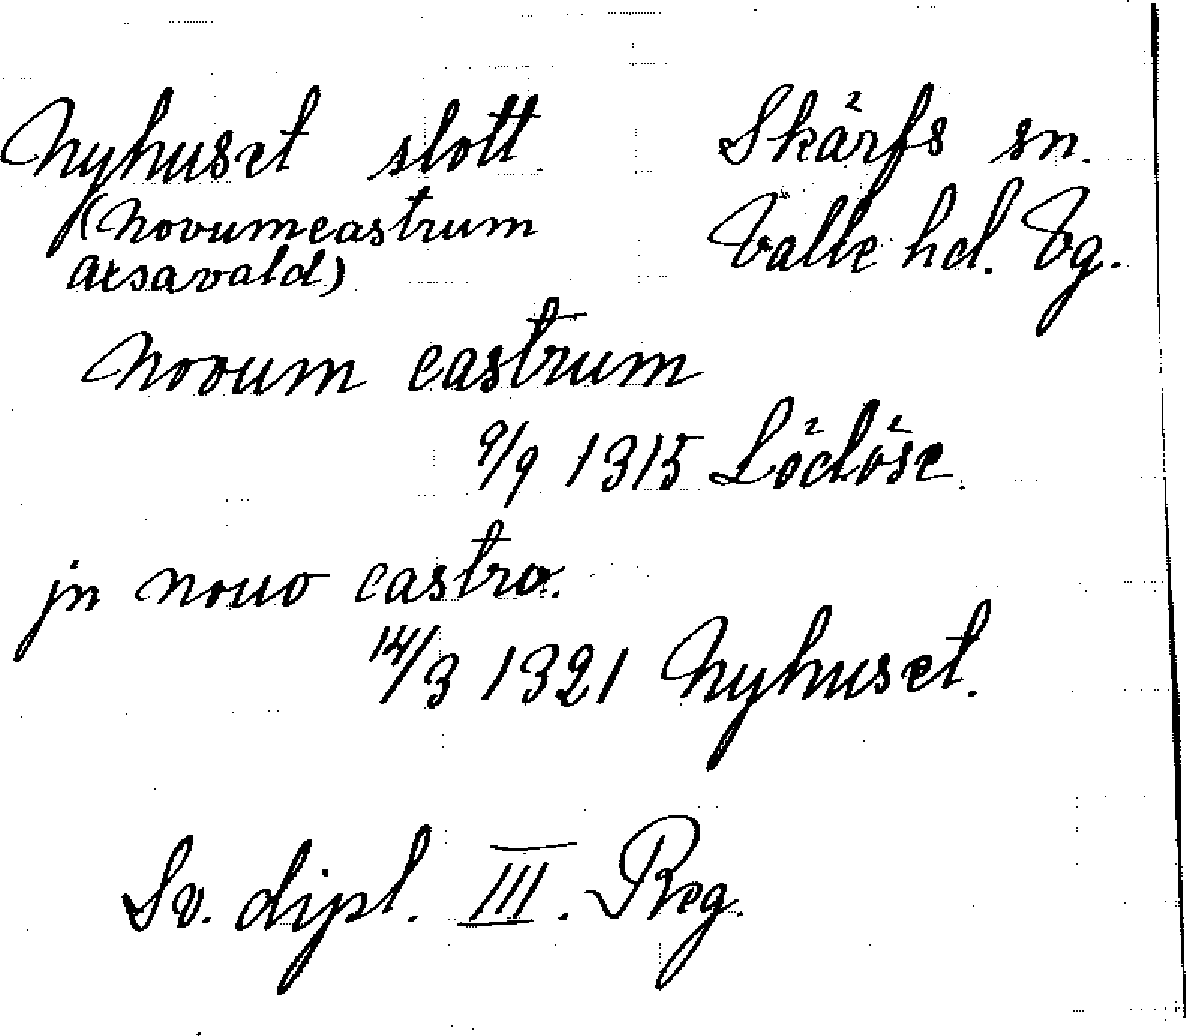 Nyhuset slott Skärfs sn.
(Novumcastrum Valle hd. Vg.
Axsavald)
Novum castrum
9/9 1315 Lödöse.
jn nouo castro.
14/3 1321 Nyhuset.
Sv. dipl. III. Reg.